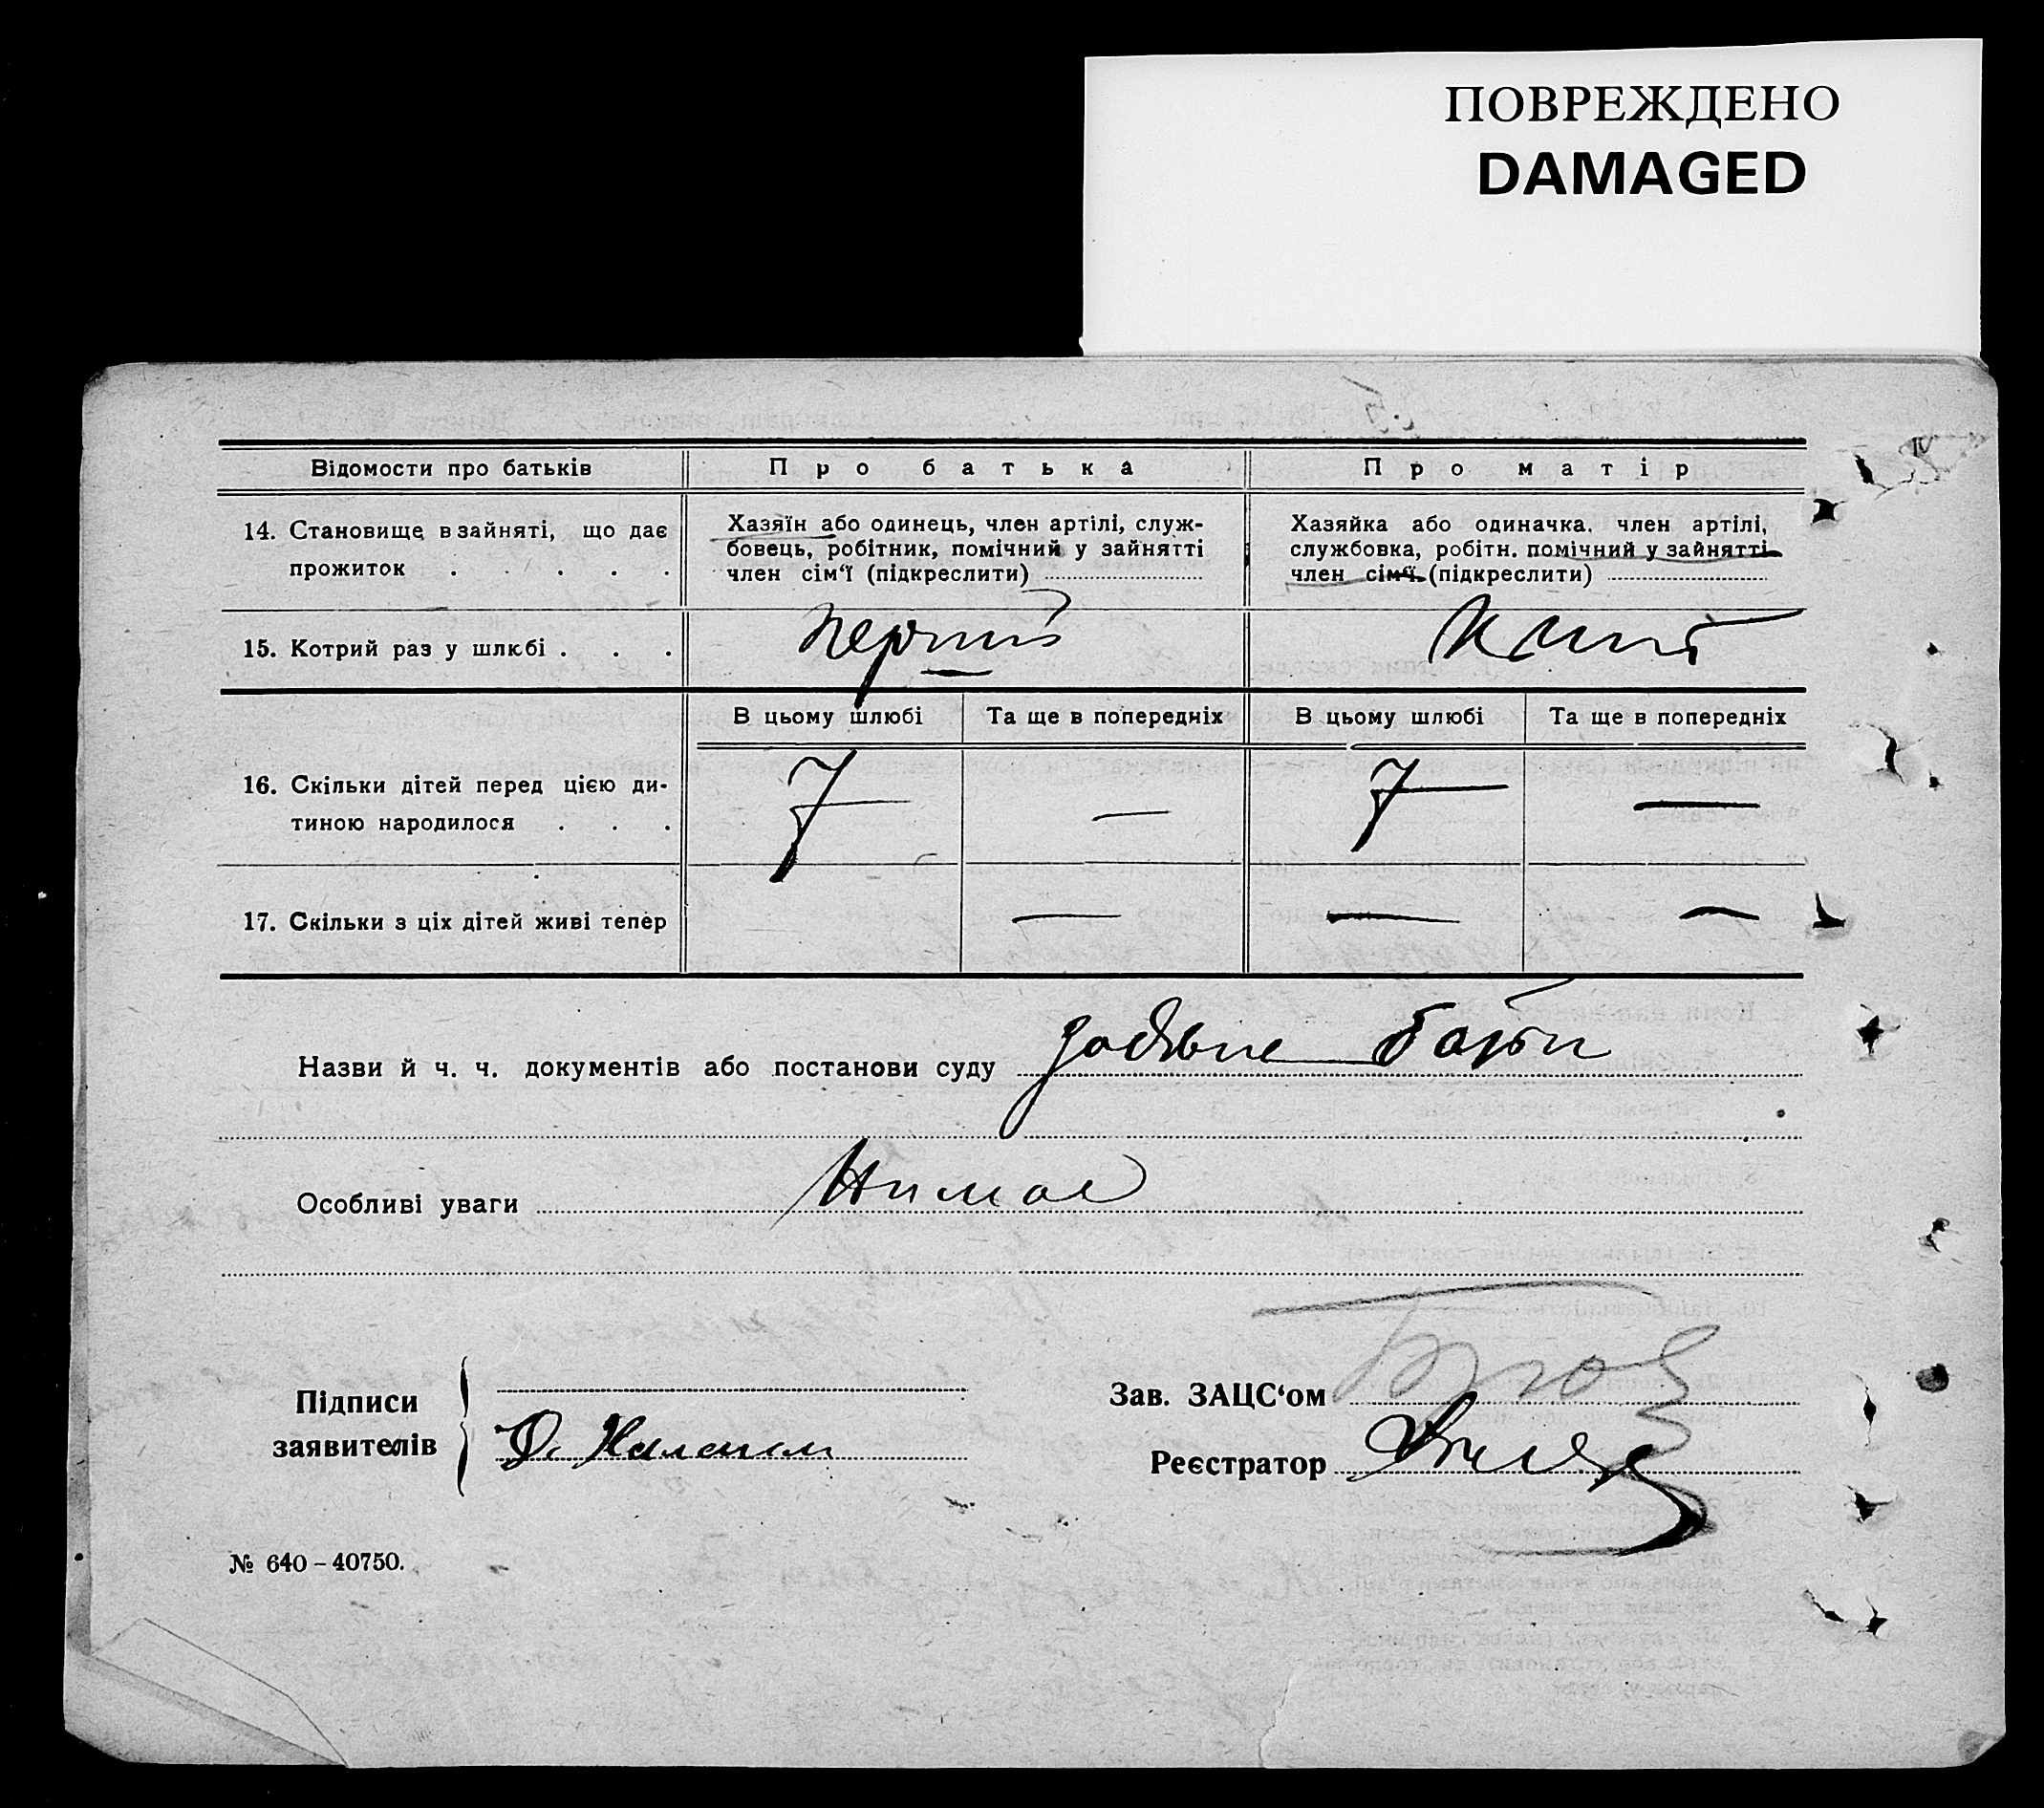 ПОВРЕЖДЕНО
DAMAGED
Відомости про батьків
Про батька
Про матір
14. Становище в зайняті, що дає
прожиток . . . .
Хазяїн або одинець, член артілі, служ-
бовець, робітник, помічний у зайнятті
член сім‘ї (підкреслити)
Хазяйка або одиначка, член артілі,
службовка, робітн. помічний у зайнятті
член сім‘ї (підкреслити)
15. Котрий раз у шлюбі . . .
перший
В цьому шлюбі
Та ще в попередніх
В цьому шлюбі
Та ще в попередніх
16. Скільки дітей перед цією ди-
тиною народилося . . .
7
—
7
—
17. Скільки з ціх дітей живі тепер
—
—
—
Назви й ч. ч. документів або постанови суду
Особливі уваги Нимае
Підписи
заявителів
Зав. ЗАЦС‘ом
Реєстратор
№ 640-40750.